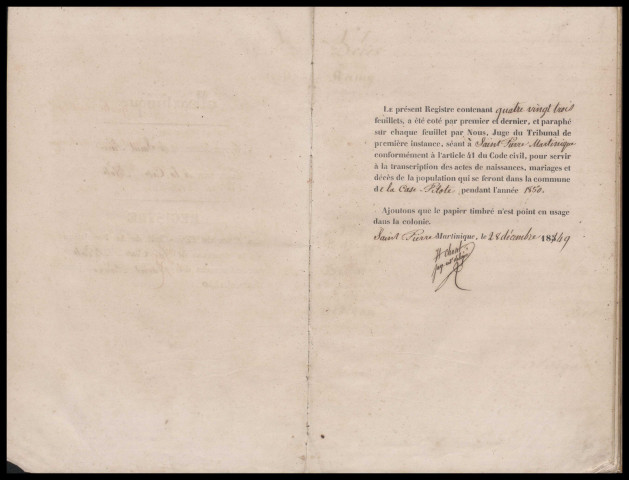 Le présent Registre contenant quatre vingt trois
feuillets, a été coté par premier et dernier, et paraphé
sur chaque feuillet par Nous, Juge du Tribunal de
première instance, séant à Saint Pierre Martinique
conformément à l'article 41 du Code civil, pour servir
à la transcription des actes de naissances, mariages et
décès de la population qui se feront dans la commune
de la Case-Pilote, pendant l'année 1850.
Ajoutons que le papier timbré n'est point en usage
dans la colonie.
Saint Pierre Martinique, le 28 décembre 1849